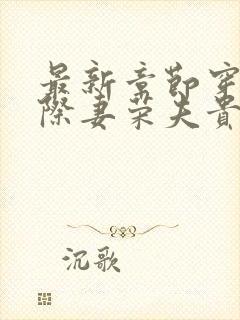 最新章节穿
际妻荣夫贵
沉歌